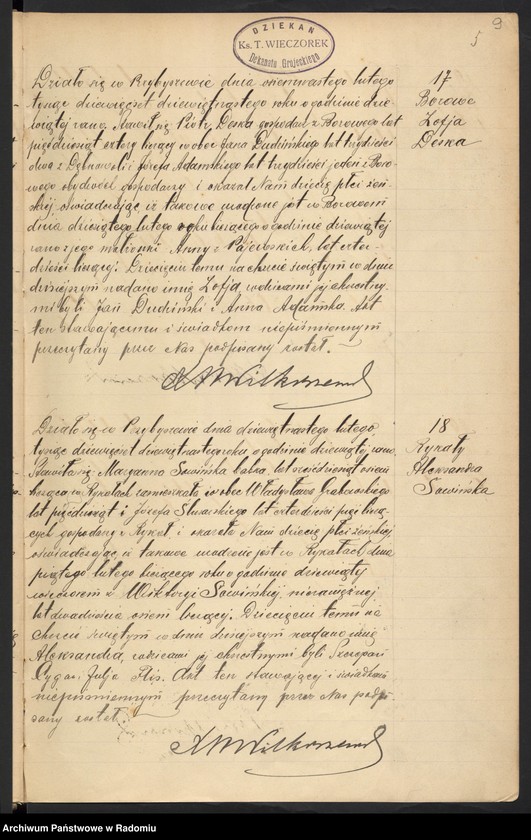 9
5
DZIEKAN
Ks. T. WIECZOREK
Dekanatu Grójeckiego
17
Borowe
Zofja
Deska
Działo się w Przybyszewie dnia osiemnastego lutego
tysiąc dziewięćset dziewiętnastego roku o godzinie dzie-
wiątej rano. Stawił się Piotr Deska gospodarz z Borowego lat
pięćdziesiąt cztery liczący w obec Jana Dudińskiego lat trzydzieści
dwa z Dębnowoli i Józefa Adamskiego lat trzydzieści jeden z Boro-
wego obydwóch gospodarzy i okazał Nam dziecię płci żeń-
skiej oświadczając iż takowe urodzone jest w Borowem
dnia dziesiątego lutego roku bieżącego o godzinie dziewiątej
rano z jego małżonki Anny z Pajewskich, lat czter-
dzieści liczącej. Dziecięciu temu na chrzcie świętym w dniu
dzisiejszym nadano imię Zofja, rodzicami jej chrzestny-
mi byli Jan Dudiński i Anna Adamska. Akt
ten stawającemu i świadkom niepiśmiennym
przeczytany przez Nas podpisany został.
18
Rykały
Aleksandra
Sowińska
Działo się w Przybyszewie dnia dziewiętnastego lutego
tysiąc dziewięćset dziewiętnastego roku o godzinie dziewiątej rano.
Stawiła się Magdalena Sowińska babka, lat sześćdziesiąt osiem
licząca w Rykałach zamieszkała w obec Władysława Grabowskiego
lat pięćdziesiąt i Józefa Slusarskiego lat czterdzieści pięć liczą-
cych gospodarzy z Rykał i okazała Nam dziecię płci żeńskiej
oświadczając iż takowe urodzone jest w Rykałach, dnia
piątego lutego bieżącego roku o godzinie dziewiątej
wieczorem z Wiktorji Sowińskiej, niezamężnej,
lat dwadzieścia osiem liczącej. Dziecięciu temu na
chrzcie świętym w dniu dzisiejszym nadano imię
Aleksandra, rodzicami jej chrzestnymi byli Szczepan
Cygan i Julja Flis. Akt ten stawającej i świadkom
niepiśmiennym przeczytany przez Nas podpi-
sany został.
Archiwum Państwowe w Radomiu